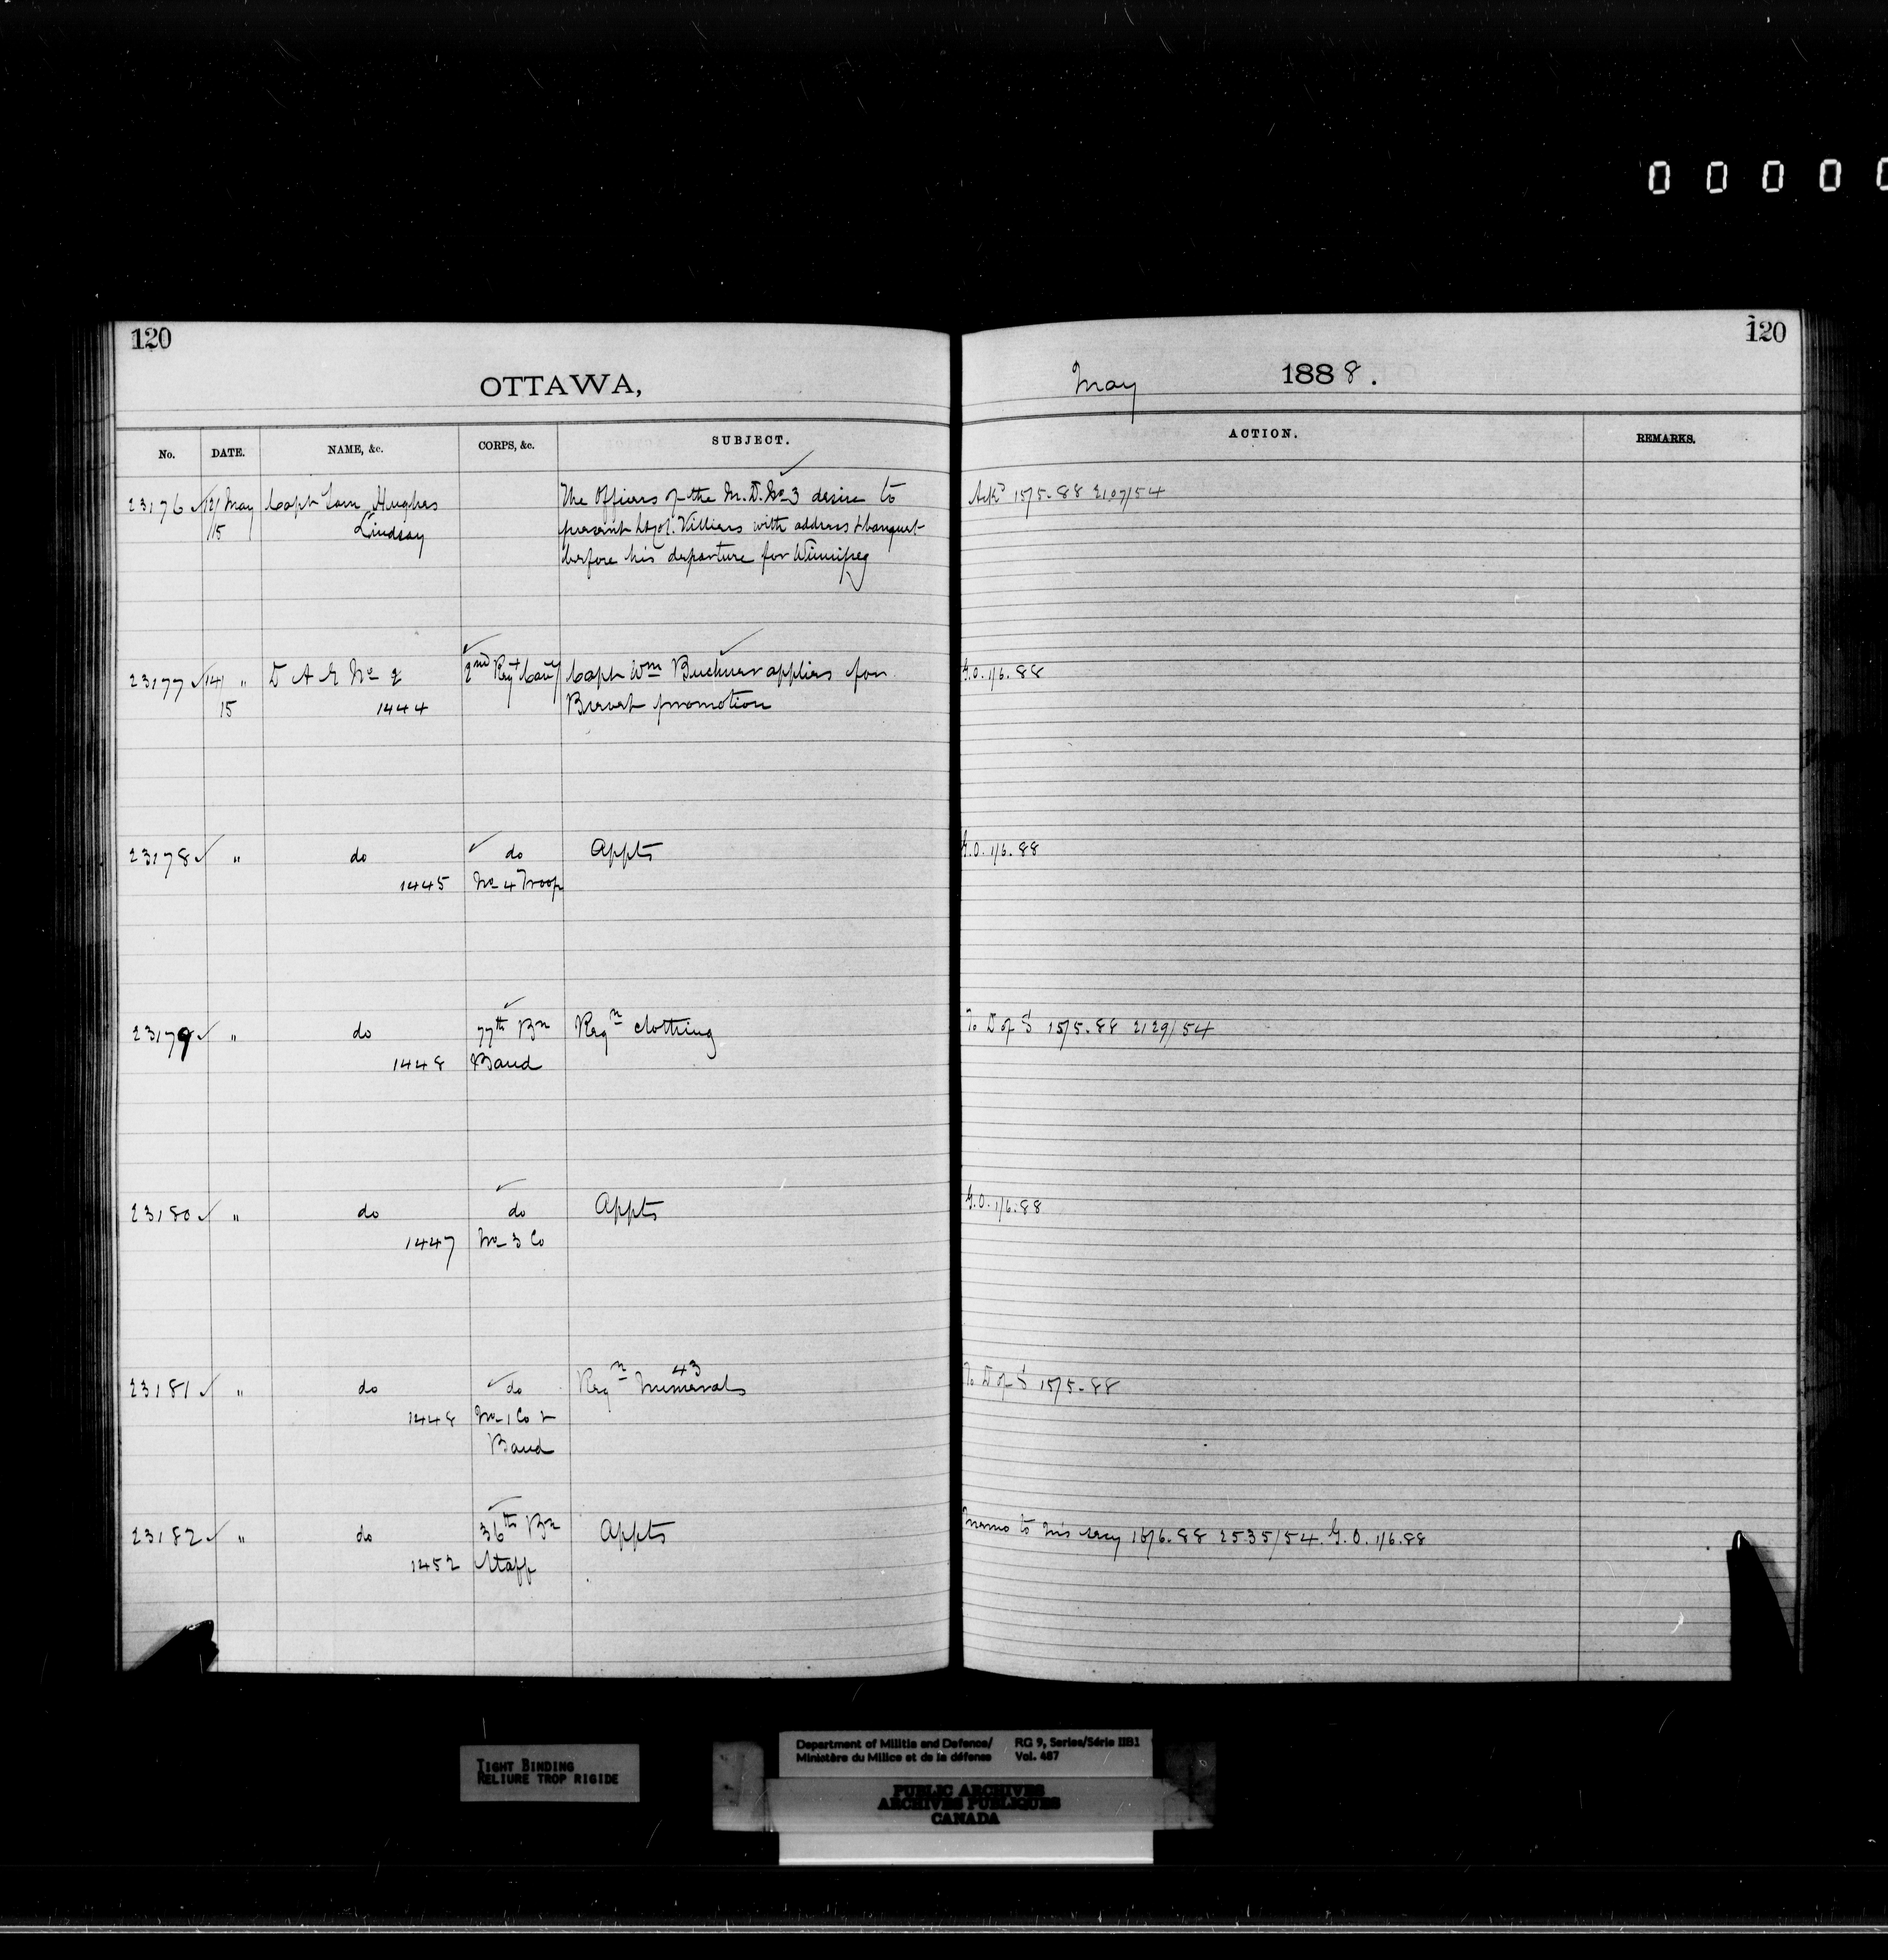 0 0 0 0 0
120
120
OTTAWA,
May 1888.
No. DATE. NAME, &c. CORPS, &c. SUBJECT. ACTION. REMARKS.
23176 12/ May Capt Sam Hughes The Officers of the M.D. No 3 desire to Ackd 15/5.88 2107/54
15 Lindsay present Lt Col. Villiers with address & banquet
before his departure for Winnipeg
23177 14/ " D A G No 2 2nd Regt Cavy Capt Wm Buchner applies for G.O. 1/6.88
15 1444 Brevet promotion
23178 " do do Appts G.O. 1/6.88
1445 No 4 Troop
23179 " do 77th Bn Reqn clothing To D of S 15/5.88 2129/54
1448 Band
23180 " do do Appts G.O. 1/6.88
1447 No 3 Co
23181 " do do Reqn 43 Numerals To D of S 15/5.88
1448 No 1 Co &
Band
23182 " do 36th Bn Appts Memo to Mil Secy 16/6.88 2535/54. G.O. 1/6.88
1452 Staff
TIGHT BINDING
RELIURE TROP RIGIDE
Department of Militia and Defence/ RG 9, Series/Série IIB1
Ministère du Milice et de la défense Vol. 487
PUBLIC ARCHIVES
ARCHIVES PUBLIQUES
CANADA